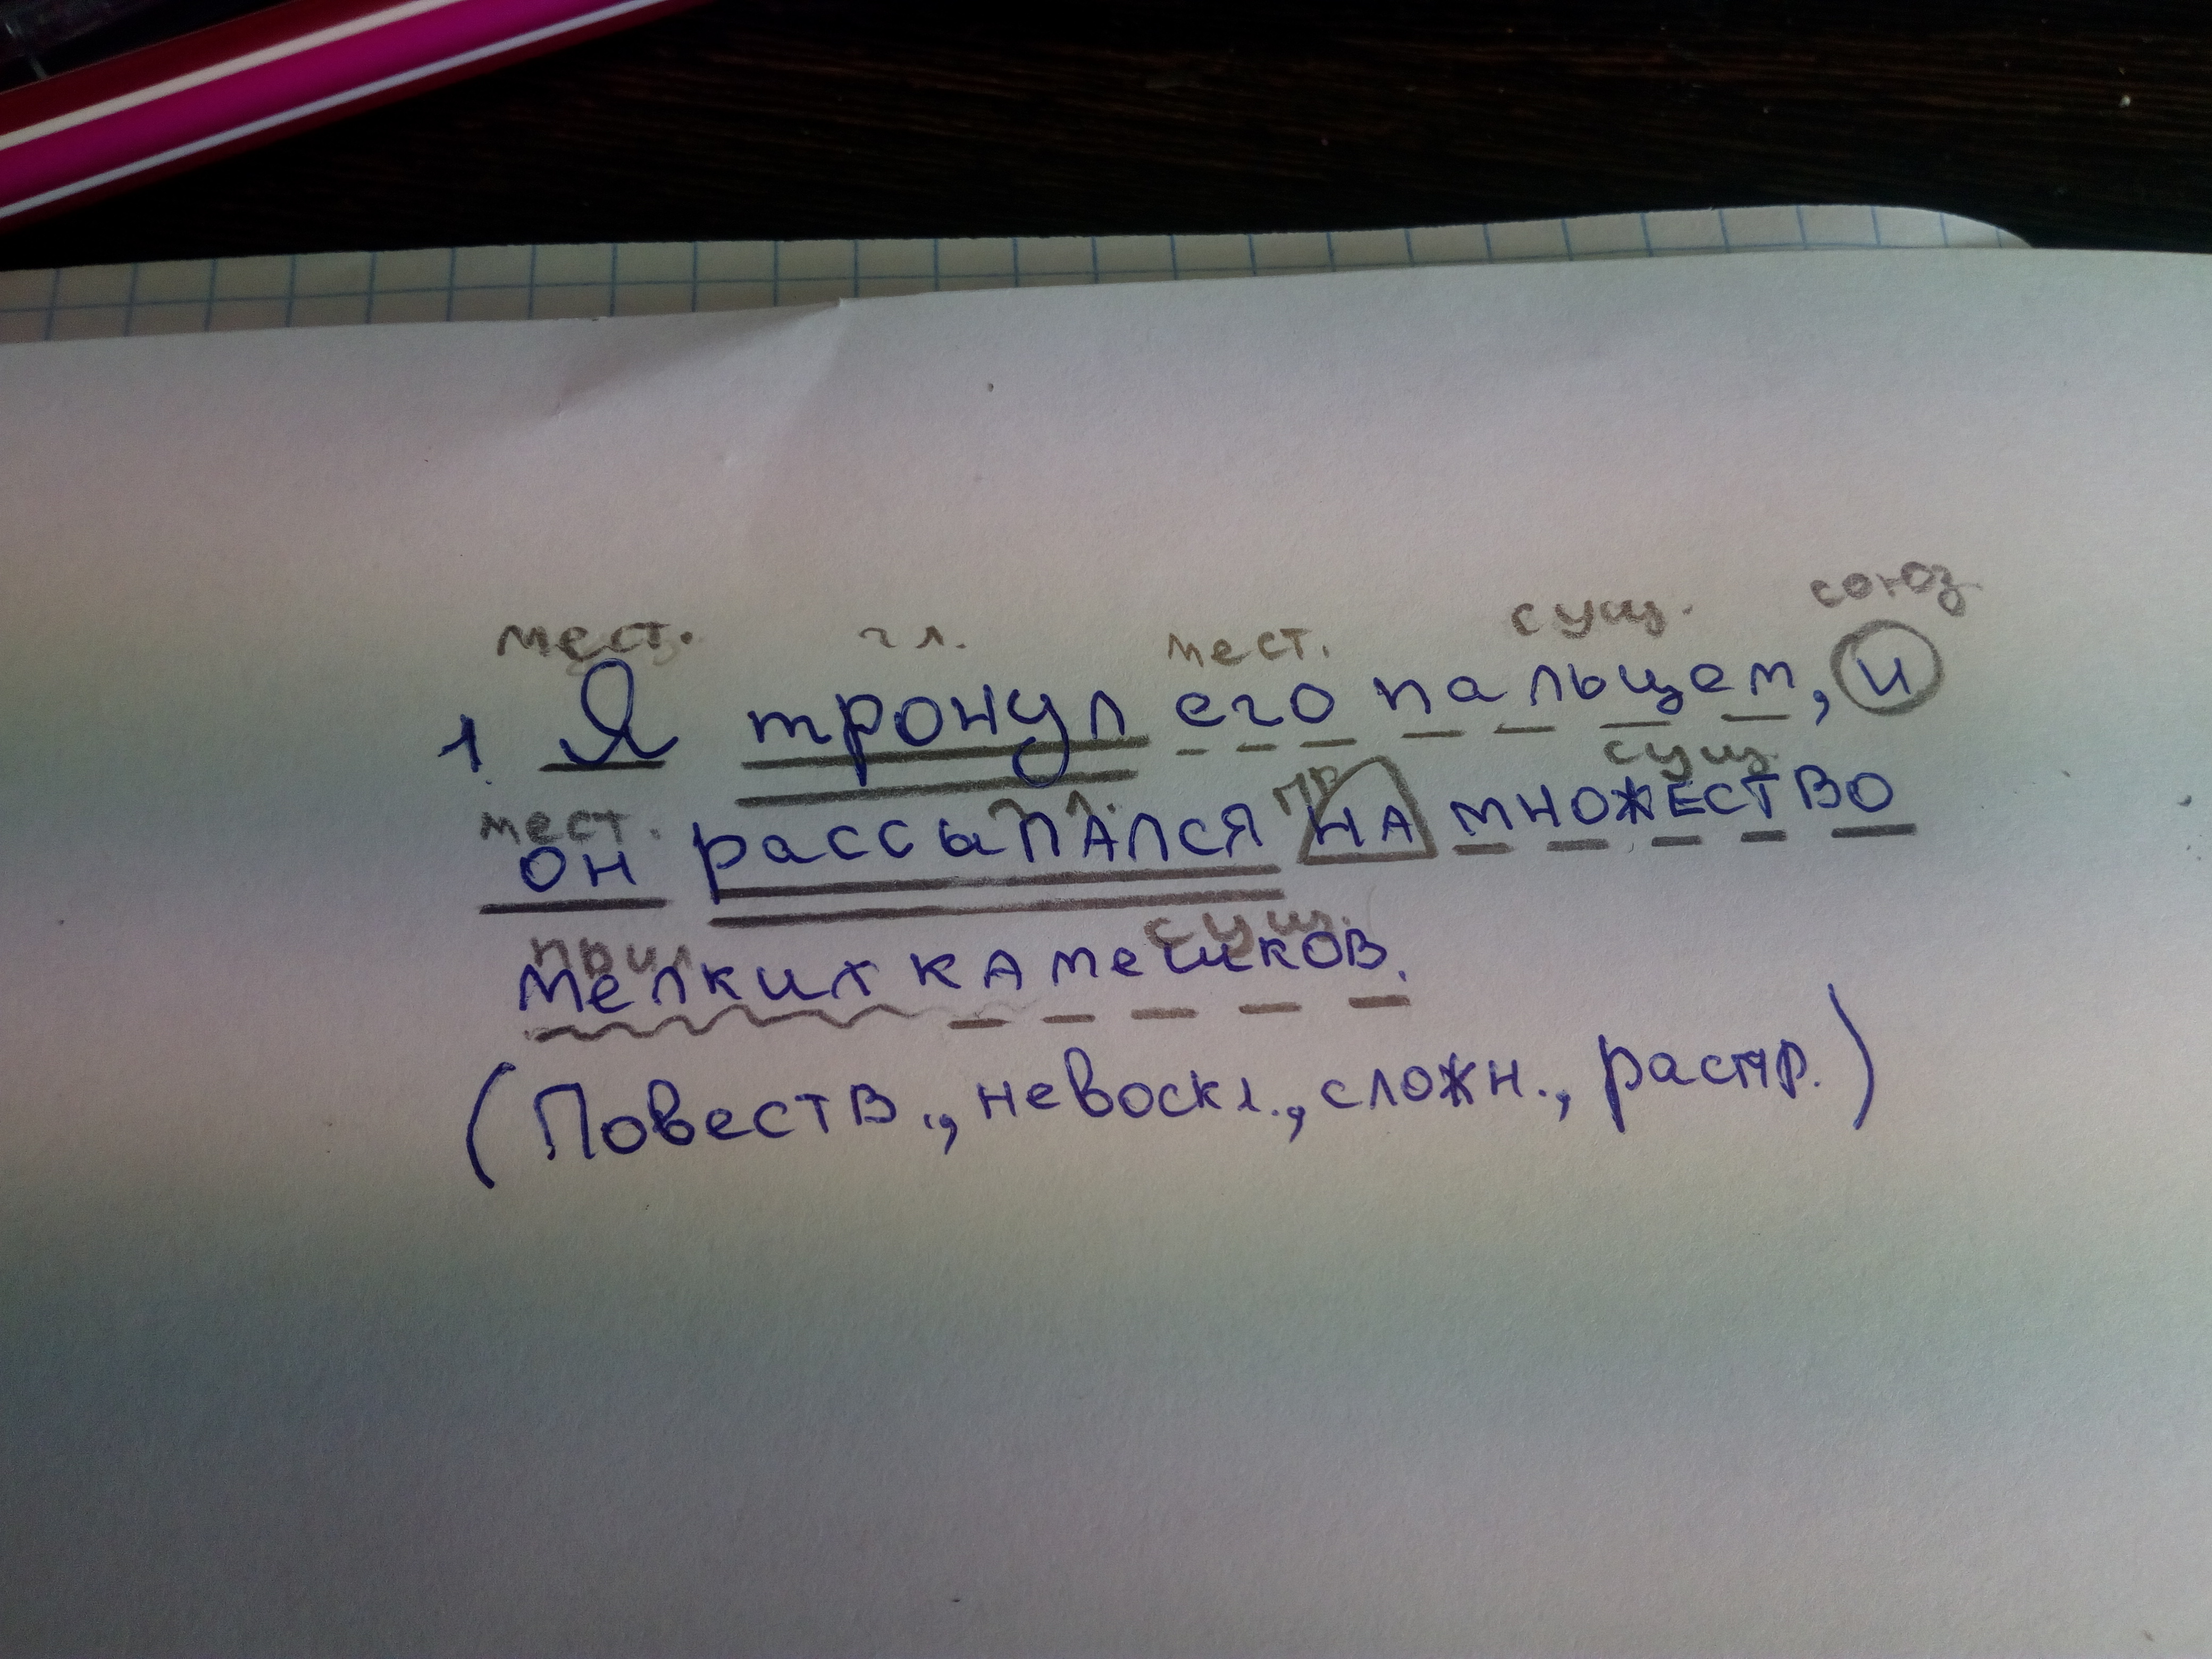 мест. гл. мест. сущ. союз.
1. Я тронул его пальцем, и
мест. гл. пр. сущ.
он рассыпАлся нА множество
прил. сущ.
мелких кАмешков.
(Повеств., невоскл., сложн., распр.)